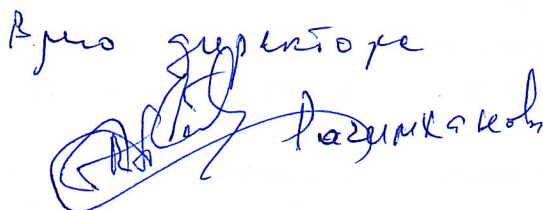 Врио директора
Рагимханов